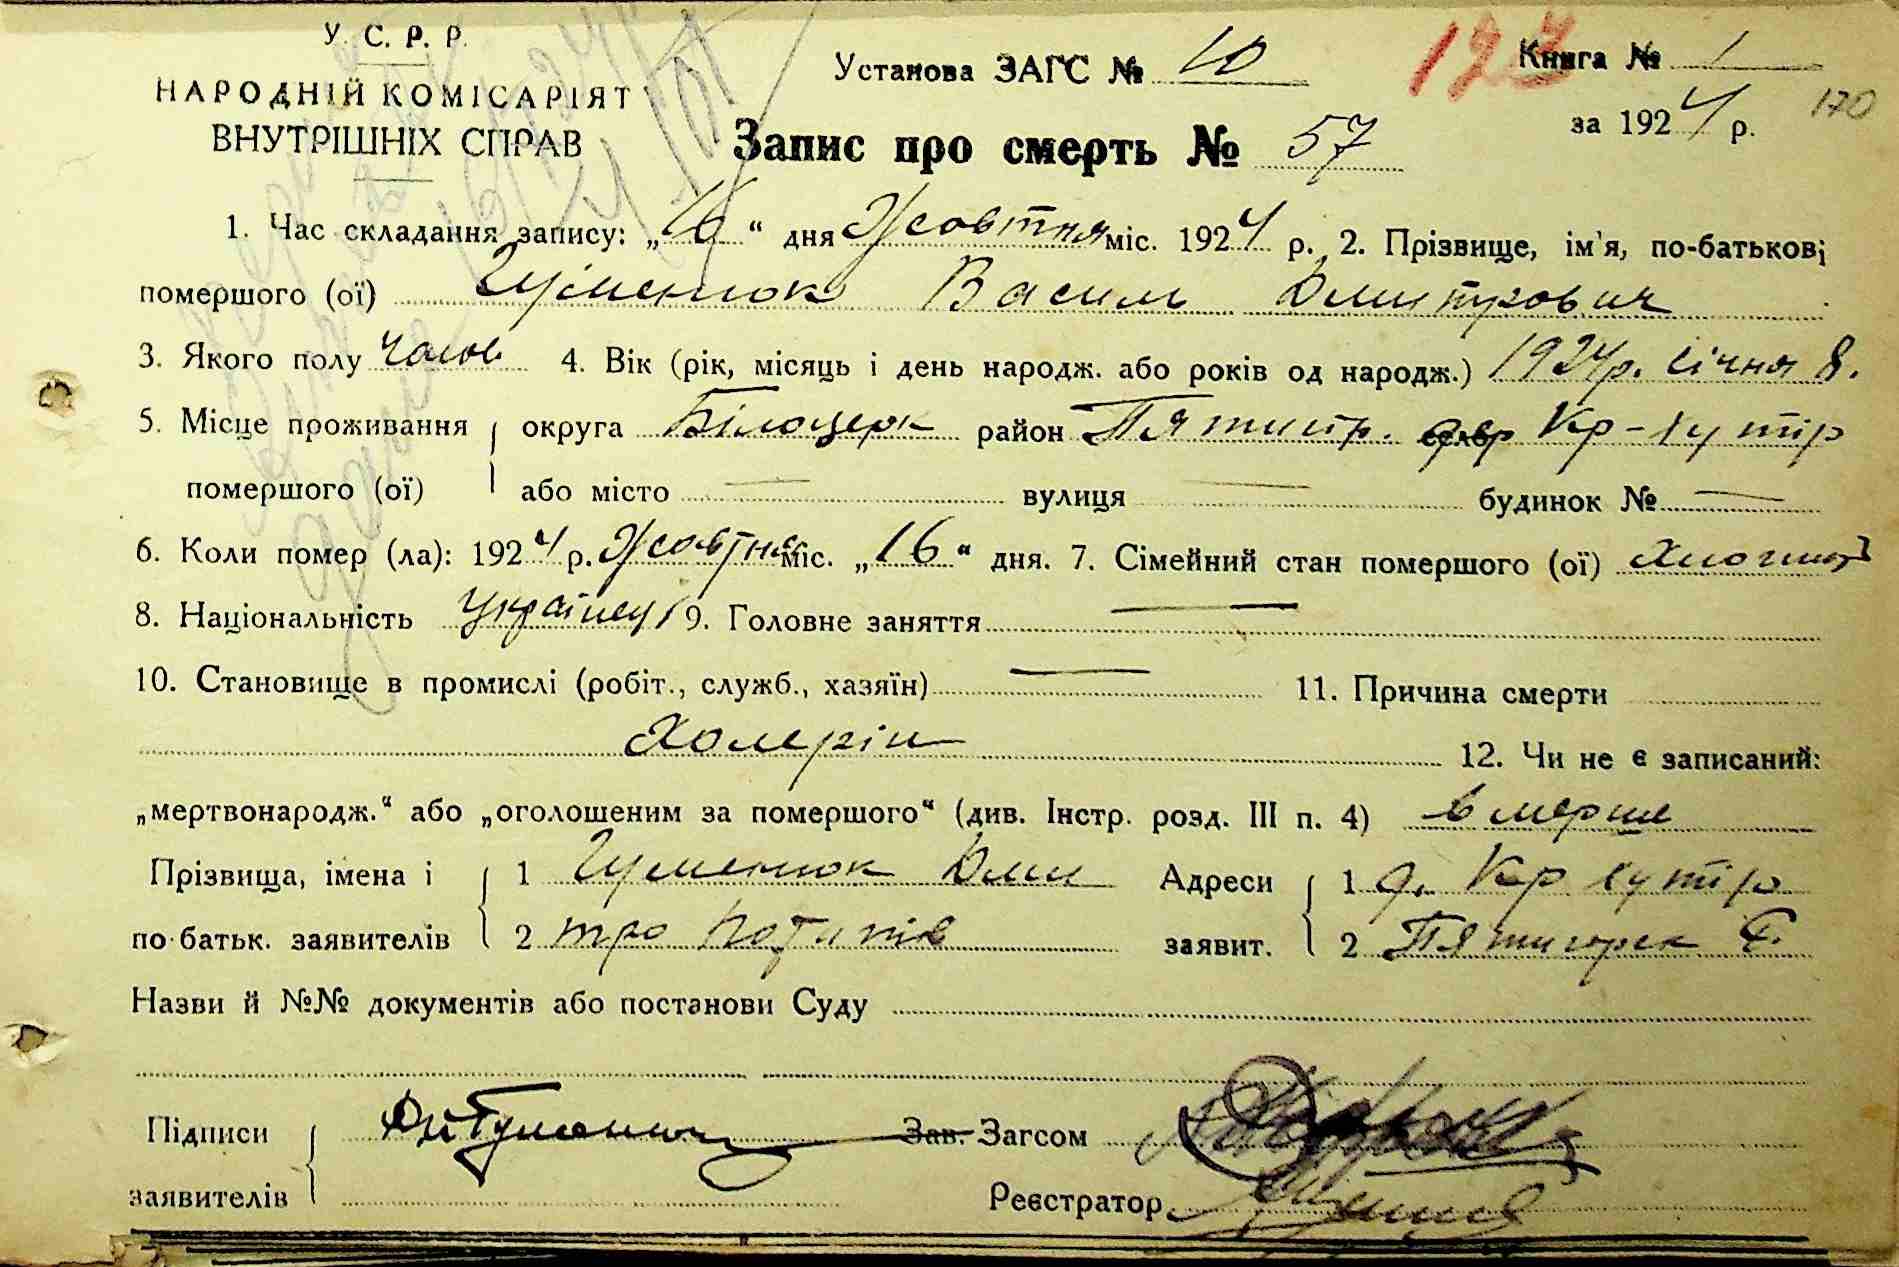 У. С. Р. Р.
НАРОДНІЙ КОМІСАРІЯТ
ВНУТРІШНІХ СПРАВ
Установа ЗАГС № 10
Книга № 1
за 1924 р.
170
Запис про смерть № 57
1. Час складання запису: „16“ дня Жовтня міс. 1924 р. 2. Прізвище, ім'я, по-батькові
помершого (ої) Гуменюк Василь Дмитрович
3. Якого полу чолов 4. Вік (рік, місяць і день народж. або років од народж.) 1924р. січня 8.
5. Місце проживання округа Білоцерк район Пятигр. Кр-хутір
помершого (ої) або місто — вулиця — будинок № —
6. Коли помер (ла): 1924 р. Жовтня міс. „16“ дня. 7. Сімейний стан помершого (ої)
8. Національність Українец 9. Головне заняття —
10. Становище в промислі (робіт., служб., хазяїн) — 11. Причина смерти
Холерін 12. Чи не є записаний:
„мертвонародж.“ або „оголошеним за помершого“ (див. Інстр. розд. III п. 4) вмерше
Прізвища, імена і 1 Гуменюк Дми Адреси 1 д. Кр хутір
по-батьк. заявителів 2 тро Потапів заявит. 2 Пятигорск
Назви й №№ документів або постанови Суду
Підписи Зав. Загсом
заявителів Реєстратор